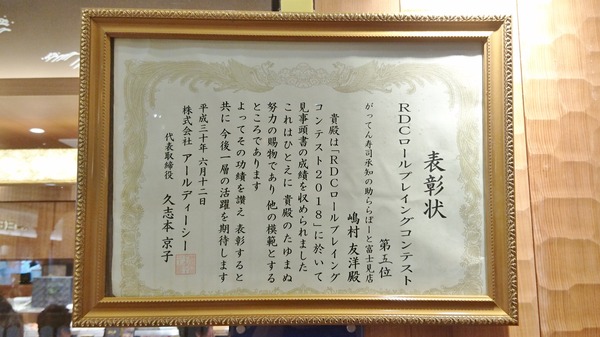 表彰状
RDCロールプレイングコンテスト
第五位
がってん寿司承知の助ららぽーと富士見店
嶋村友洋殿
貴殿は「RDCロールプレイング
コンテスト2018」に於いて
見事頭書の成績を収められました
これはひとえに 貴殿のたゆまぬ
努力の賜物であり 他の模範とする
ところであります
よってその功績を讃え 表彰すると
共に 今後一層の活躍を期待します
平成三十年 六月十二日
株式会社 アールディーシー
代表取締役 久志本 京子